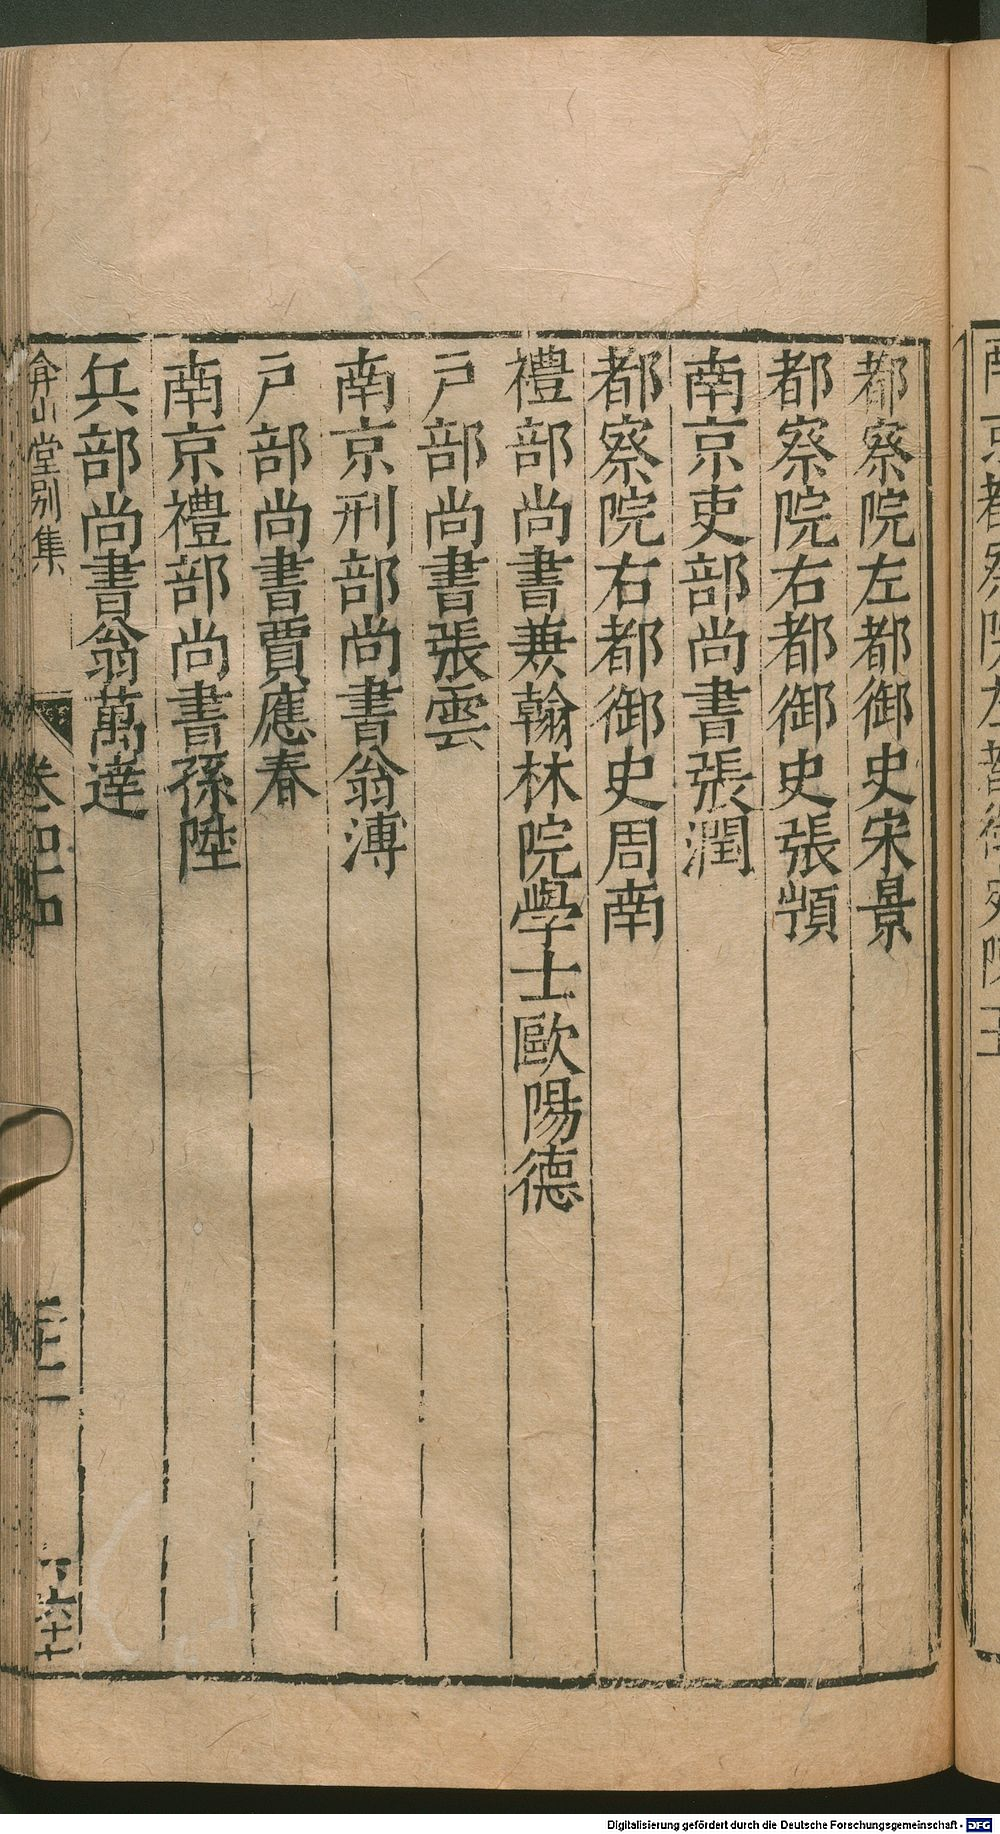 都察院左都御史宋景
都察院右都御史張𩒮
南京吏部尚書張潤
都察院右都御史周南
禮部尚書兼翰林院學士歐陽德
戶部尚書張雲
南京刑部尚書翁溥
戶部尚書賈應春
南京禮部尚書孫陞
兵部尚書翁萬達
弇山堂別集
卷四十四
Digitalisierung gefördert durch die Deutsche Forschungsgemeinschaft - DFG